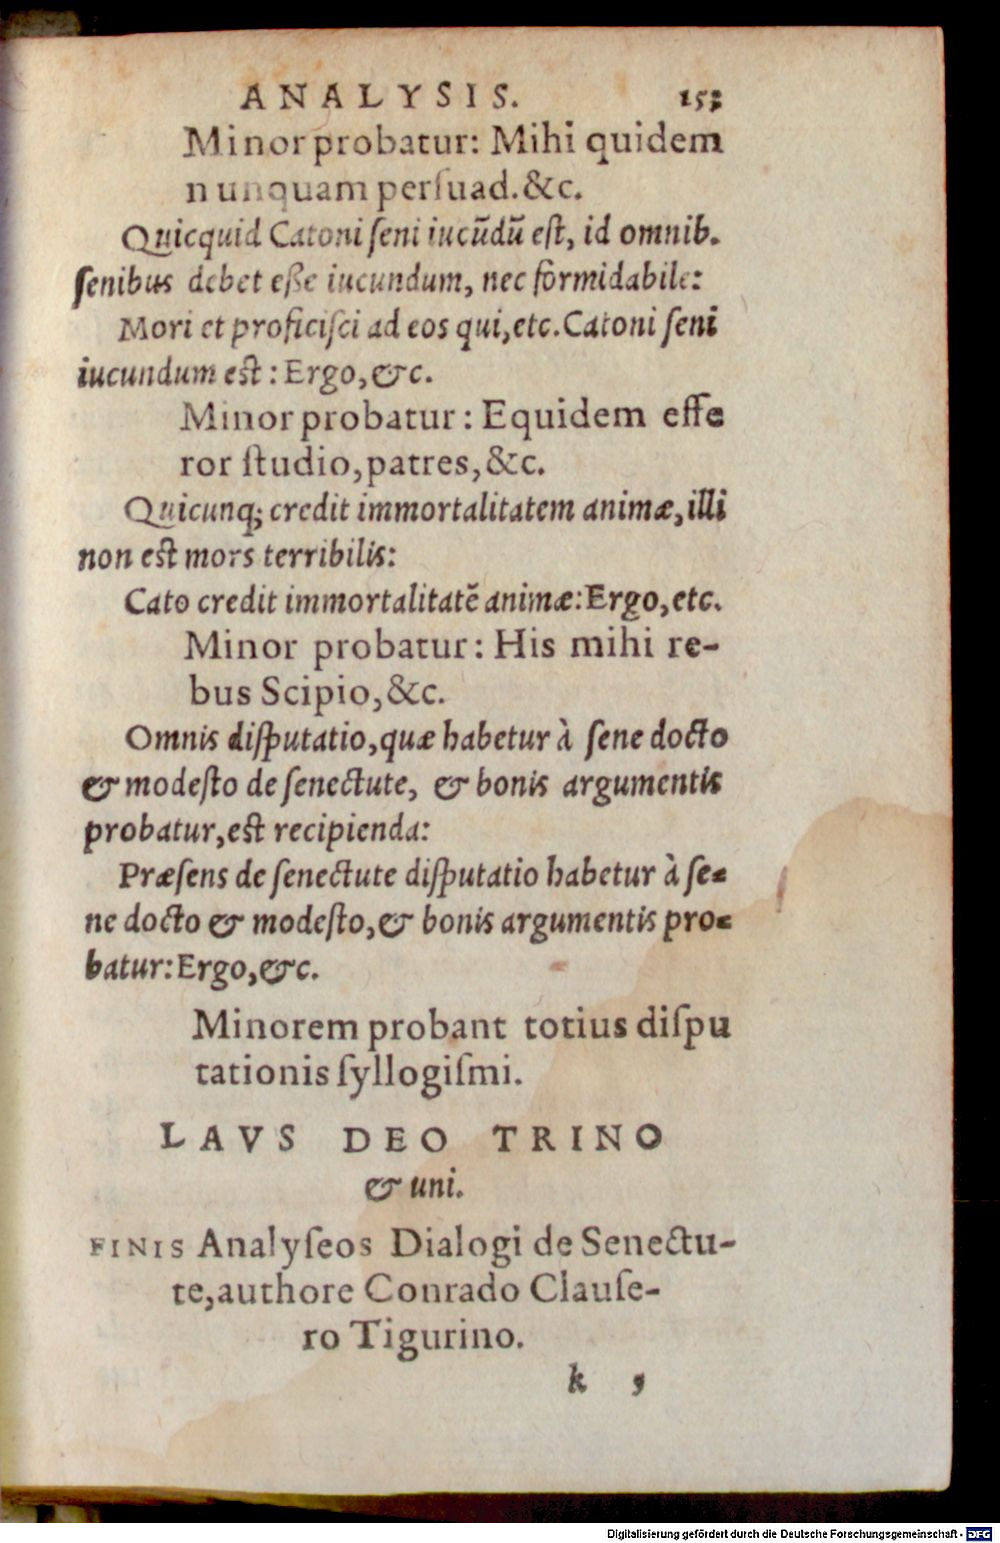 ANALYSIS. 153
Minor probatur: Mihi quidem
nunquam perſuad. &c.
Quicquid Catoni ſeni iucũdũ eſt, id omnib.
ſenibus debet eße iucundum, nec formidabile:
Mori et proficiſci ad eos qui, etc. Catoni ſeni
iucundum eſt: Ergo, &c.
Minor probatur: Equidem effe
ror ſtudio, patres, &c.
Quicunq; credit immortalitatem animæ, illi
non eſt mors terribilis:
Cato credit immortalitatẽ animæ: Ergo, etc.
Minor probatur: His mihi re-
bus Scipio, &c.
Omnis diſputatio, quæ habetur à ſene docto
& modeſto de ſenectute, & bonis argumentis
probatur, eſt recipienda:
Præſens de ſenectute diſputatio habetur à ſe-
ne docto & modeſto, & bonis argumentis pro-
batur: Ergo, &c.
Minorem probant totius diſpu
tationis ſyllogiſmi.
LAVS DEO TRINO
& uni.
FINIS Analyſeos Dialogi de Senectu-
te, authore Conrado Clauſe-
ro Tigurino.
k
Digitalisierung gefördert durch die Deutsche Forschungsgemeinschaft - DFG